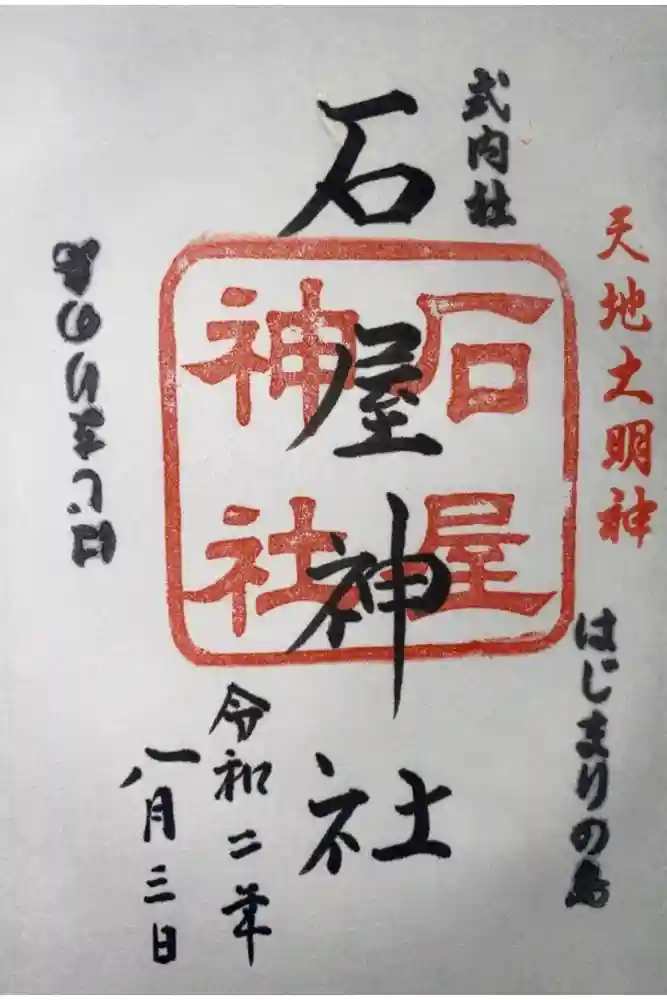 天地大明神
はじまりの島
式内社
石屋神社
石屋
神社
令和二年
八月三日
はじまりの島